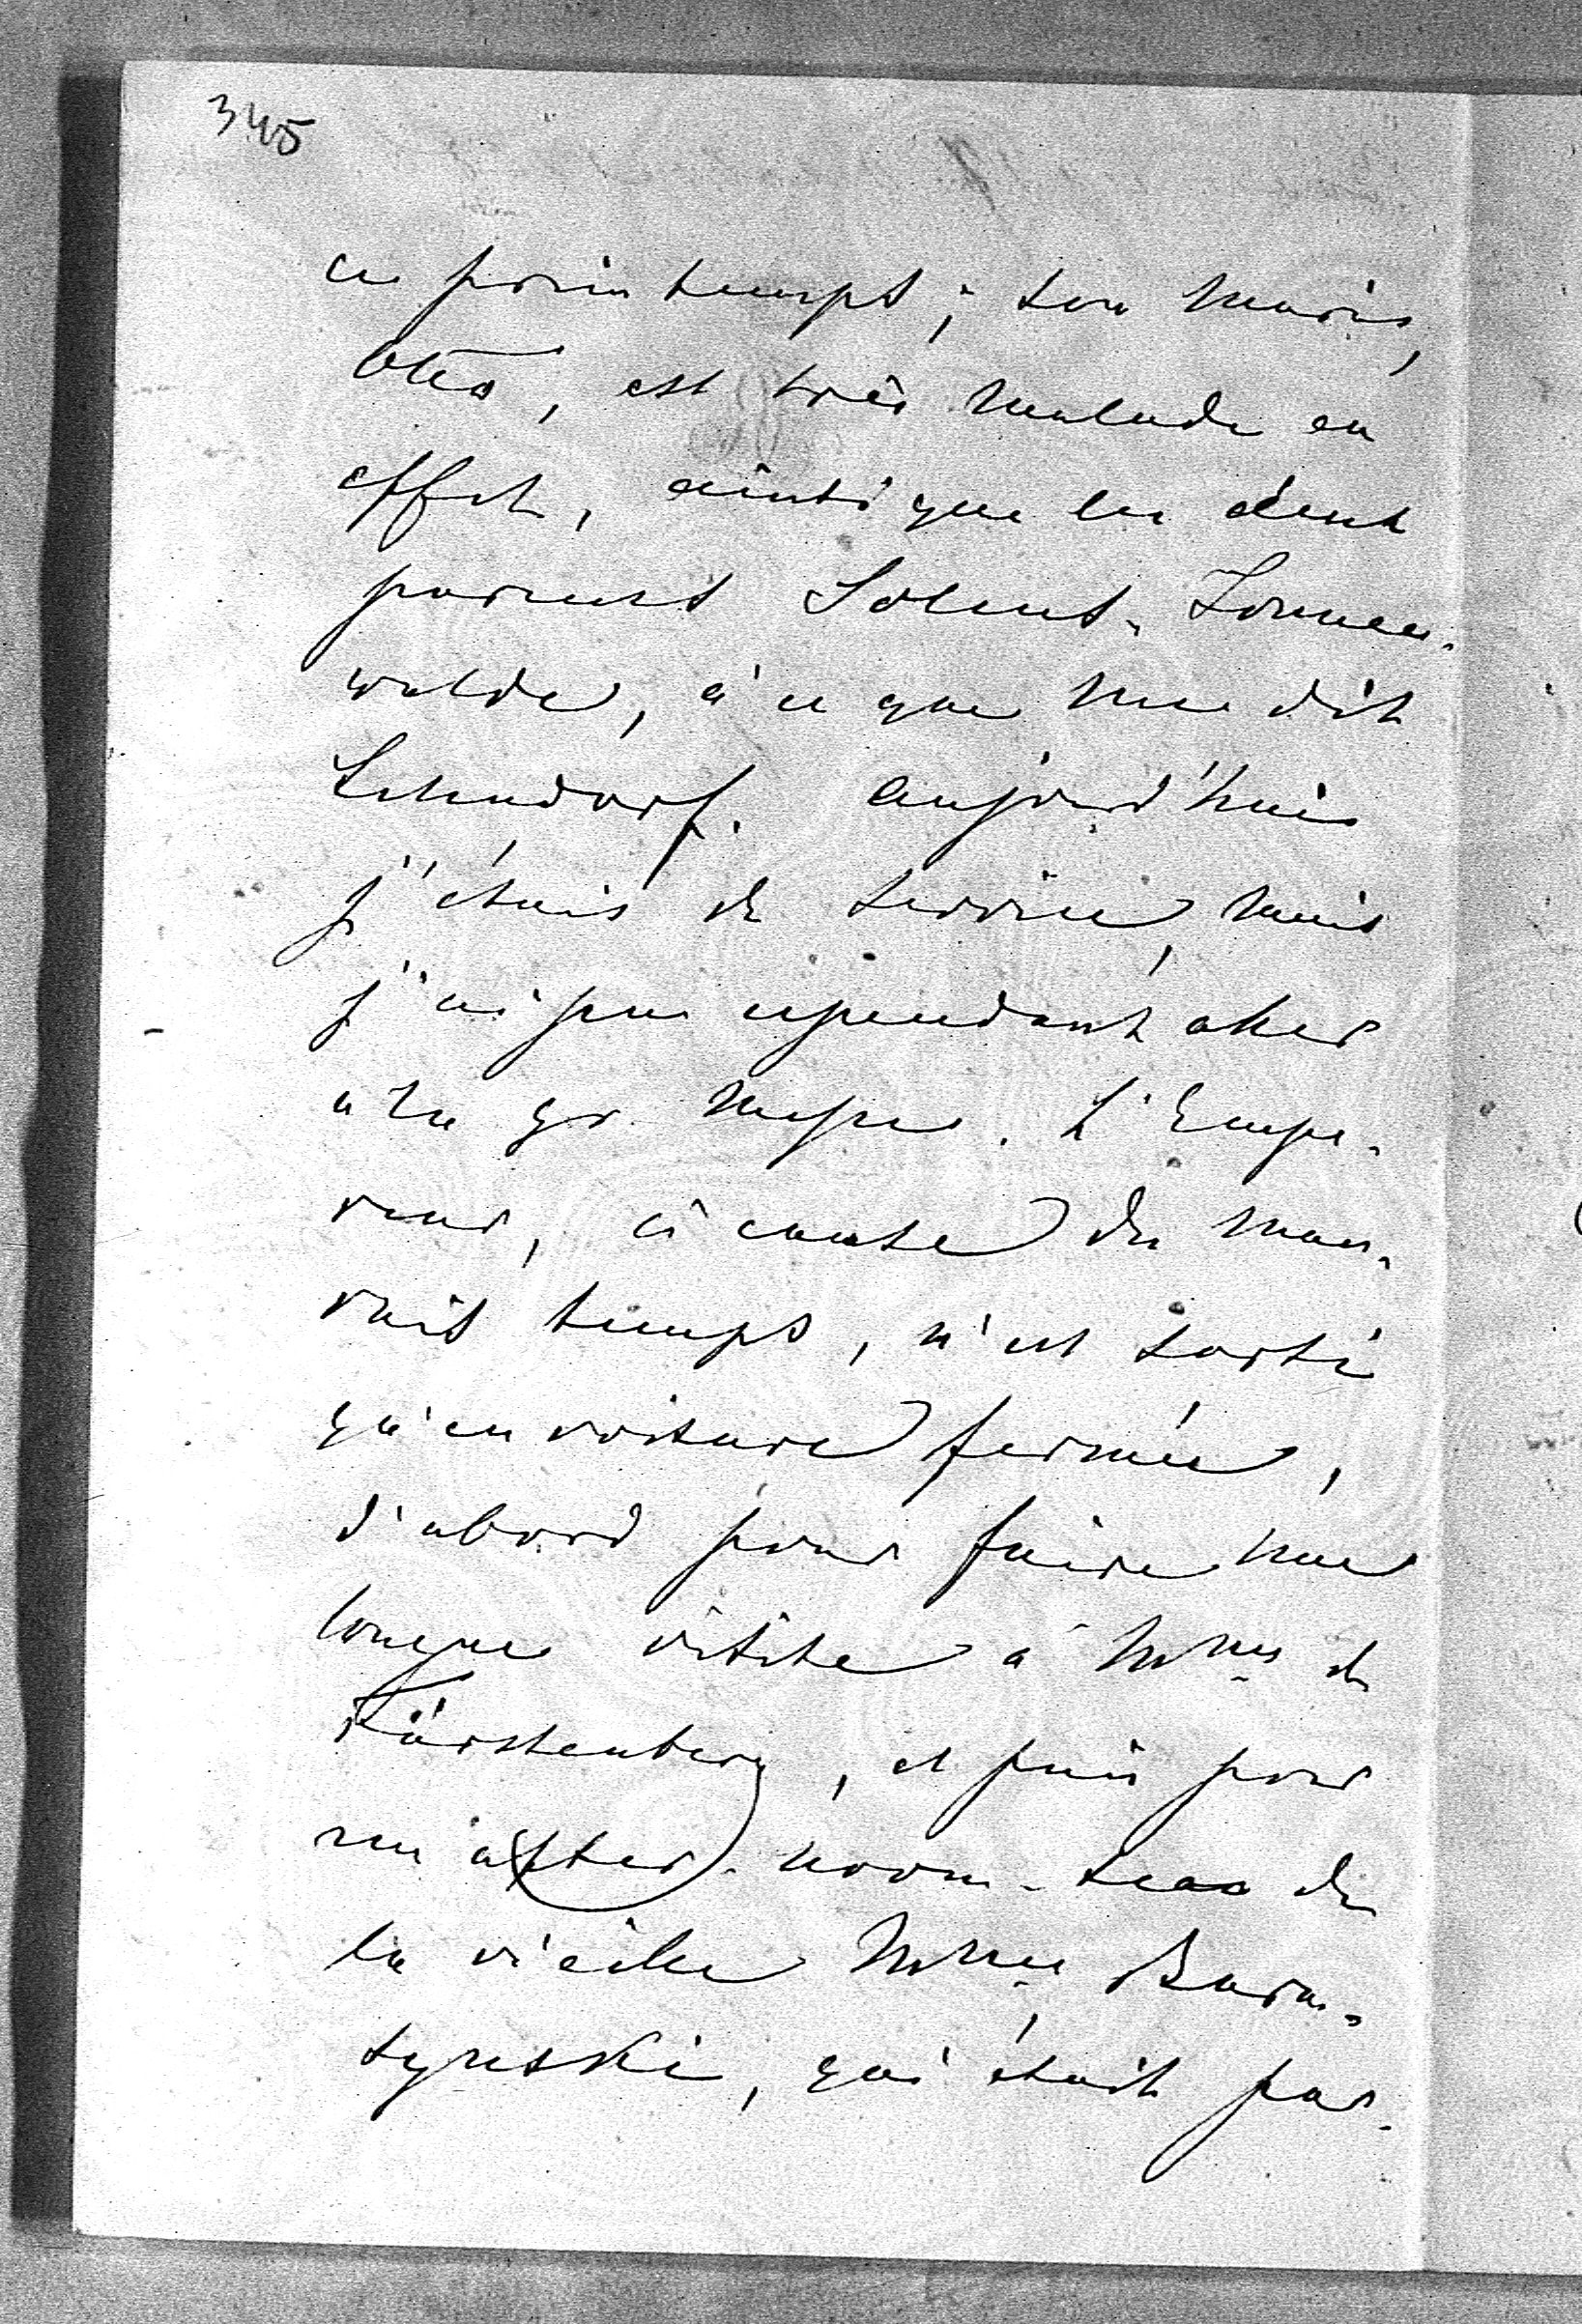 345
ce printemps; son mari,
Otto, est très malade en
effet, ainsi que les deux
parents Solms-Sonnen-
walde, à ce que me dit
Lehndorf. Aujourd'hui
j'étais de service, mais
j'ai pu cependant aller
à la gr. messe. L'Empe-
reur, à cause du mau-
vais temps, n'est sorti
qu'en voiture fermée,
d'abord pour faire une
longue visite à Mme de
Fürstenberg, et puis pour
un after-noon-tea de
la vieille Mme
qui était par-